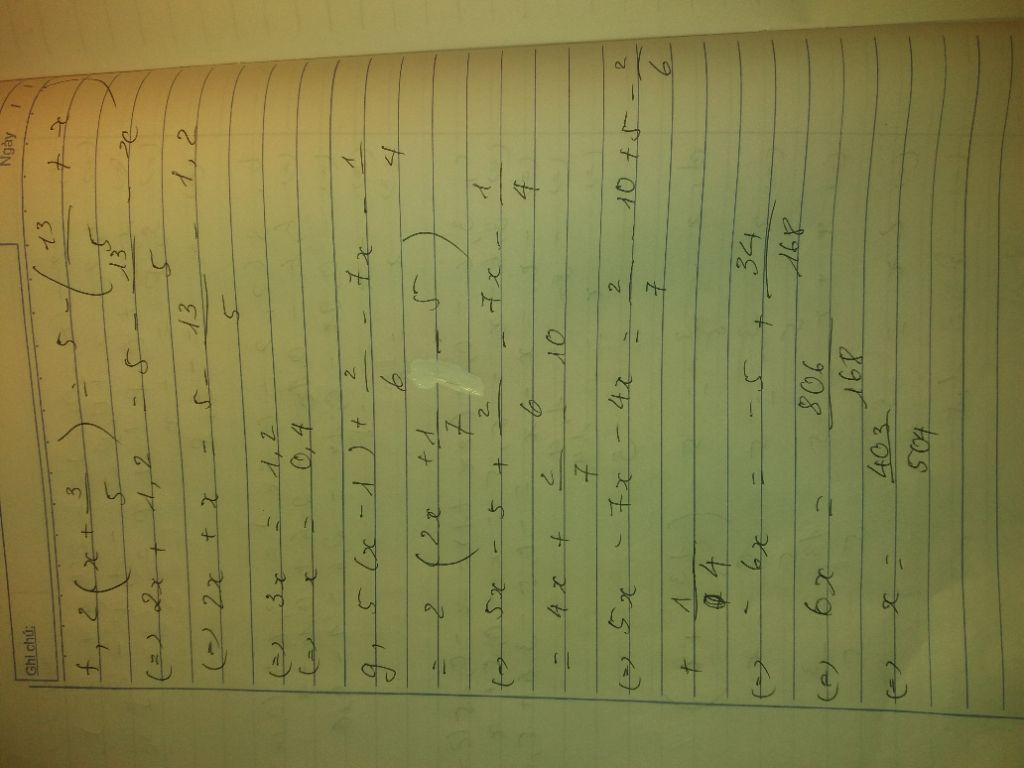 Ghi chú:
Ngày
f, 2(x + 3/5) = 5 - (13/5 + x)
(=) 2x + 1,2 = 5 - 13/5 - x
(=) 2x + x = 5 - 13/5 - 1,2
(=) 3x = 1,2
(=) x = 0,4
g, 5(x - 1) + 2/6 - 7x - 1/4
= 2(2x + 1/7 - 5)
(=) 5x - 5 + 2/6 - 7x - 1/4
= 4x + 2/7 - 10
(=) 5x - 7x - 4x = 2/7 - 10 + 5 - 2/6
+ 1/4
(=) - 6x = - 5 + 34/168
(=) 6x = 806/168
(=) x = 403/504